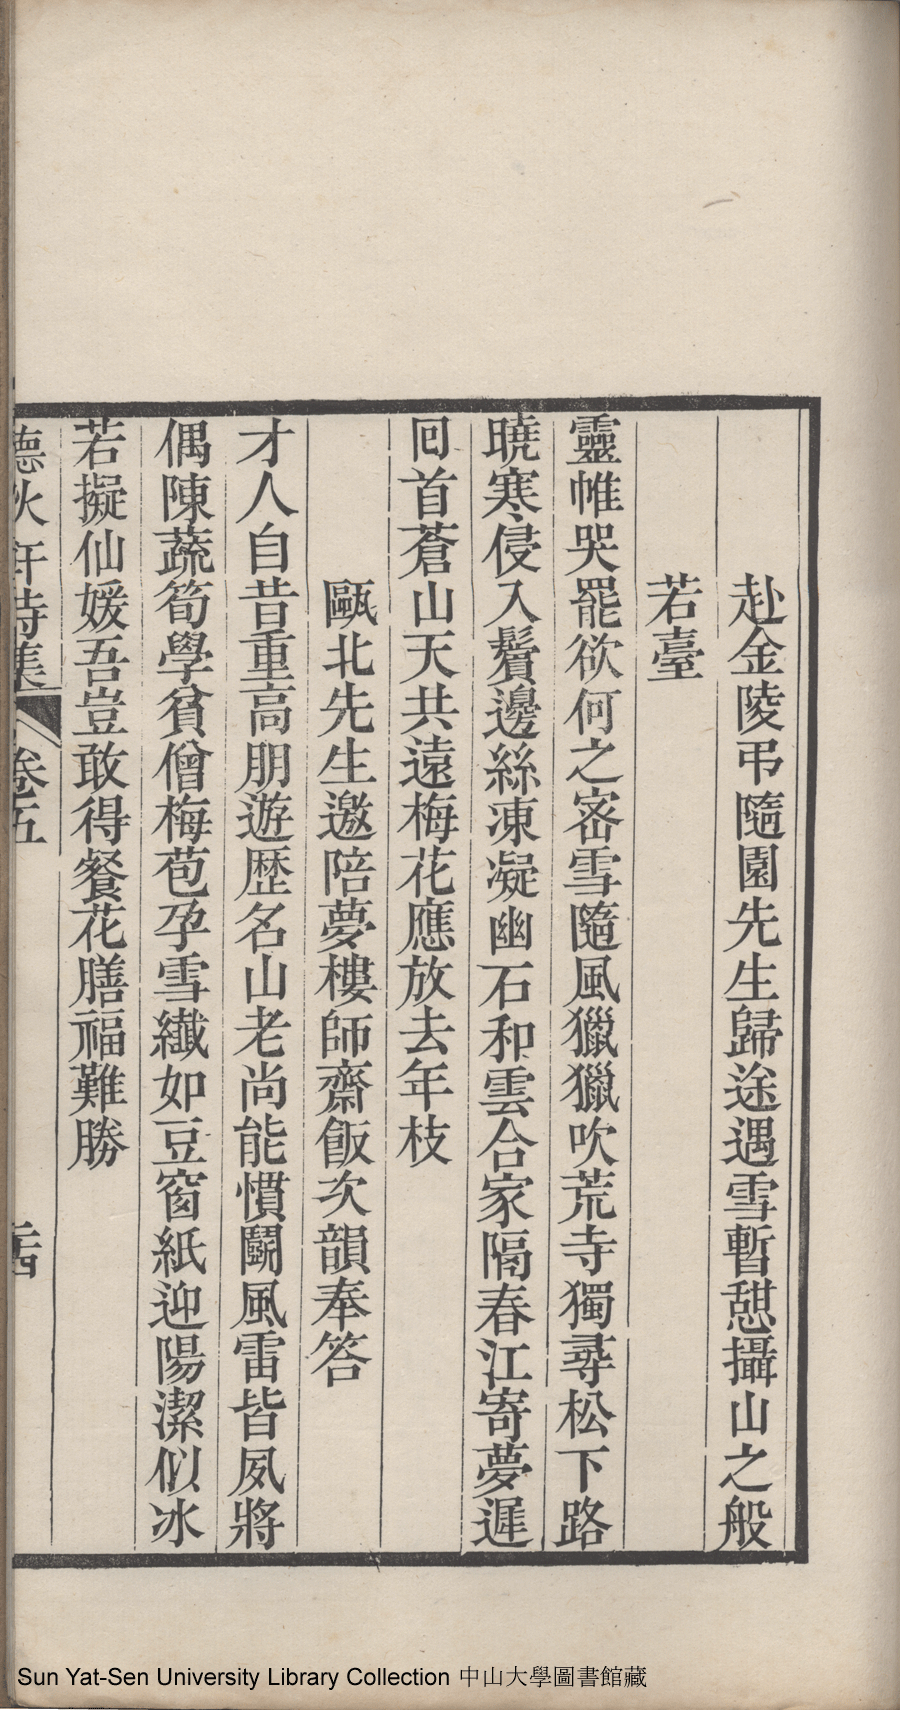 赴金陵弔隨園先生歸途遇雪暫憇攝山之般
若臺
靈帷哭罷欲何之密雪隨風獵獵吹荒寺獨尋松下路
曉寒侵入鬢邊絲凍凝幽石和雲合家隔春江寄夢遲
回首蒼山天共遠梅花應放去年枝
甌北先生邀陪夢樓師齋飯次韻奉答
才人自昔重高朋遊歴名山老尚能慣鬭風雷皆夙將
偶陳蔬筍學貧僧梅苞孕雪纖如豆窗紙迎陽潔似冰
若擬仙媛吾豈敢得餐花膳福難勝
聽秋軒詩集 卷五 二十四
Sun Yat-Sen University Library Collection 中山大學圖書館藏